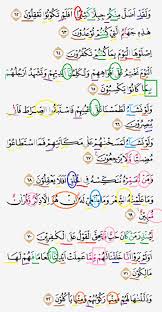 وَلَقَدْ أَضَلَّ مِنكُمْ جِبِلًّا كَثِيرًا أَفَلَمْ تَكُونُوا۟ تَعْقِلُونَ ٦٢
هَٰذِهِۦ جَهَنَّمُ ٱلَّتِى كُنتُمْ تُوعَدُونَ ٦٣
ٱصْلَوْهَا ٱلْيَوْمَ بِمَا كُنتُمْ تَكْفُرُونَ ٦٤
ٱلْيَوْمَ نَخْتِمُ عَلَىٰٓ أَفْوَٰهِهِمْ وَتُكَلِّمُنَآ أَيْدِيهِمْ وَتَشْهَدُ أَرْجُلُهُم
بِمَا كَانُوا۟ يَكْسِبُونَ ٦٥
وَلَوْ نَشَآءُ لَطَمَسْنَا عَلَىٰٓ أَعْيُنِهِمْ فَٱسْتَبَقُوا۟ ٱلصِّرَٰطَ فَأَنَّىٰ
يُبْصِرُونَ ٦٦
وَلَوْ نَشَآءُ لَمَسَخْنَٰهُمْ عَلَىٰ مَكَانَتِهِمْ فَمَا ٱسْتَطَٰعُوا۟
مُضِيًّا وَلَا يَرْجِعُونَ ٦٧
وَمَن نُّعَمِّرْهُ نُنَكِّسْهُ فِى ٱلْخَلْقِ أَفَلَا يَعْقِلُونَ ٦٨
وَمَا عَلَّمْنَٰهُ ٱلشِّعْرَ وَمَا يَنۢبَغِى لَهُۥٓ إِنْ هُوَ إِلَّا ذِكْرٌ وَقُرْءَانٌ
مُّبِينٌ ٦٩
لِّيُنذِرَ مَن كَانَ حَيًّا وَيَحِقَّ ٱلْقَوْلُ عَلَى ٱلْكَٰفِرِينَ ٧٠
أَوَلَمْ يَرَوْا۟ أَنَّا خَلَقْنَا لَهُم مِّمَّا عَمِلَتْ أَيْدِينَآ أَنْعَٰمًا فَهُمْ لَهَا
مَٰلِكُونَ ٧١
وَذَلَّلْنَٰهَا لَهُمْ فَمِنْهَا رَكُوبُهُمْ وَمِنْهَا يَأْكُلُونَ ٧٢